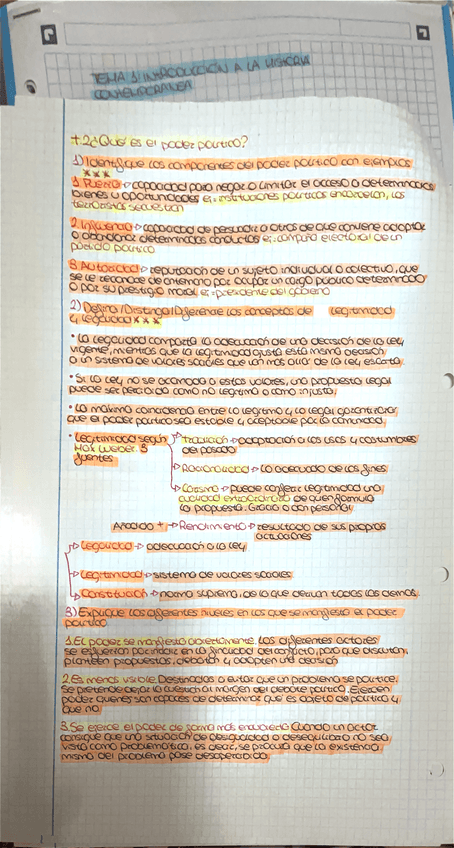 TEMA 1: INTRODUCCIÓN A LA HISTORIA
CONTEMPORÁNEA
+2¿Qué es el poder político?
1) Identifique los componentes del poder político con ejemplos
***
1. Fuerza → capacidad para negar o limitar el acceso a determinados
bienes u oportunidades ej: instituciones políticas encarcelan, los
terroristas secuestran
2. Influencia → capacidad de persuadir a otros de que conviene adoptar
o abandonar determinadas conductas ej: campaña electoral de un
partido político
3. Autoridad → reputación de un sujeto individual o colectivo, que
se le reconoce de antemano por ocupar un cargo público determinado
o por su prestigio moral ej: presidente del gobierno
2) Defina/Distinga/Diferencie los conceptos de legitimidad
y legalidad ***
• La legalidad comporta la adecuación de una decisión de la ley
vigente, mientras que la legitimidad ajusta esta misma decisión
a un sistema de valores sociales que van más allá de la ley escrita.
• Si la ley no se acomoda a estos valores, una propuesta legal
puede ser percibida como no legítima o como injusta.
• La máxima coincidencia entre lo legítimo y lo legal garantizaría
que el poder político sea estable y aceptable por la comunidad.
• Legitimidad según → Tradición → adaptación a los usos y costumbres
Max Weber: 3 del pasado
fuentes
→ Racionalidad → lo adecuado de los fines
→ Carisma → puede conferir legitimidad una
cualidad extraordinaria de quien formula
la propuesta. Gracia o don personal
Añadido + → Rendimiento → resultado de sus propias
actuaciones
→ Legalidad → adecuación a la ley
→ Legitimidad → sistema de valores sociales
→ Constitución → norma suprema, de la que derivan todas las demás.
3) Explique los diferentes niveles en los que se manifiesta el poder
político
1. El poder se manifiesta abiertamente. Los diferentes actores
se esfuerzan por incidir en la finalidad del conflicto, para que discutan,
planteen propuestas, debatan y adopten una decisión
2. Es menos visible. Destinados a evitar que un problema se politice.
Se pretende dejar la cuestión al margen del debate político. Ejercen
poder quienes son capaces de determinar que es objeto de política y
que no.
3. Se ejerce el poder de forma más enmascarada. Cuando un actor
consigue que una situación de desigualdad o desequilibrio no sea
vista como problemática, es decir, se procura que la existencia
misma del problema pase desapercibida.